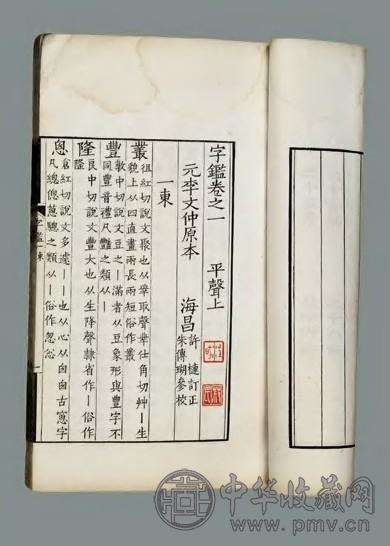 字鑑卷之一 平聲上
元李文仲原本 海昌
許槤訂正
朱傳瑚參校
一東
叢
祖紅切說文聚也从丵取聲丵仕角切艸丨生
貌上从四直畫兩長兩短俗作䕺
豐
敷中切說文豆之丨滿者从豆象形與豊字不
同豊音禮凡豔之類从丨
隆
良中切說文豐大也从生降聲隸省作丨俗作
悤
倉紅切說文多遽丨丨也从心从囪囪古窻字
凡總傯蔥驄之類从丨俗作怱忩
字鑑
東
一
中华收藏网
www.pmv.cn